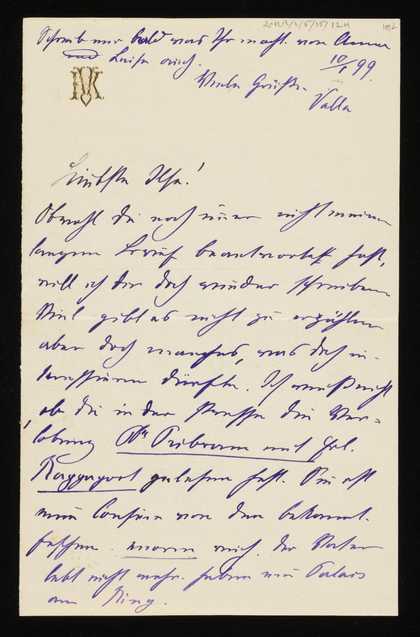 Schreib mir bald was Ihr macht. von Anna
und Luise auch.
10/I 99.
Viele Grüße
Valla
Liebste Ilse!
Obwohl Du noch immer nicht meinen
langen Brief beantwortet hast,
will ich Dir doch wieder schreiben
Viel gibt es nicht zu erzählen
aber doch manches, was Dich in-
teressieren dürfte. Ich weiß nicht
ob Du in der Presse die Ver-
lobung Dr Pribram mit Frl.
gelesen hast. Sie ist
eine Cousine von den bekannt.
enorm reich. Der Vater
lebt nicht mehr. haben ein Palais
am Ring.